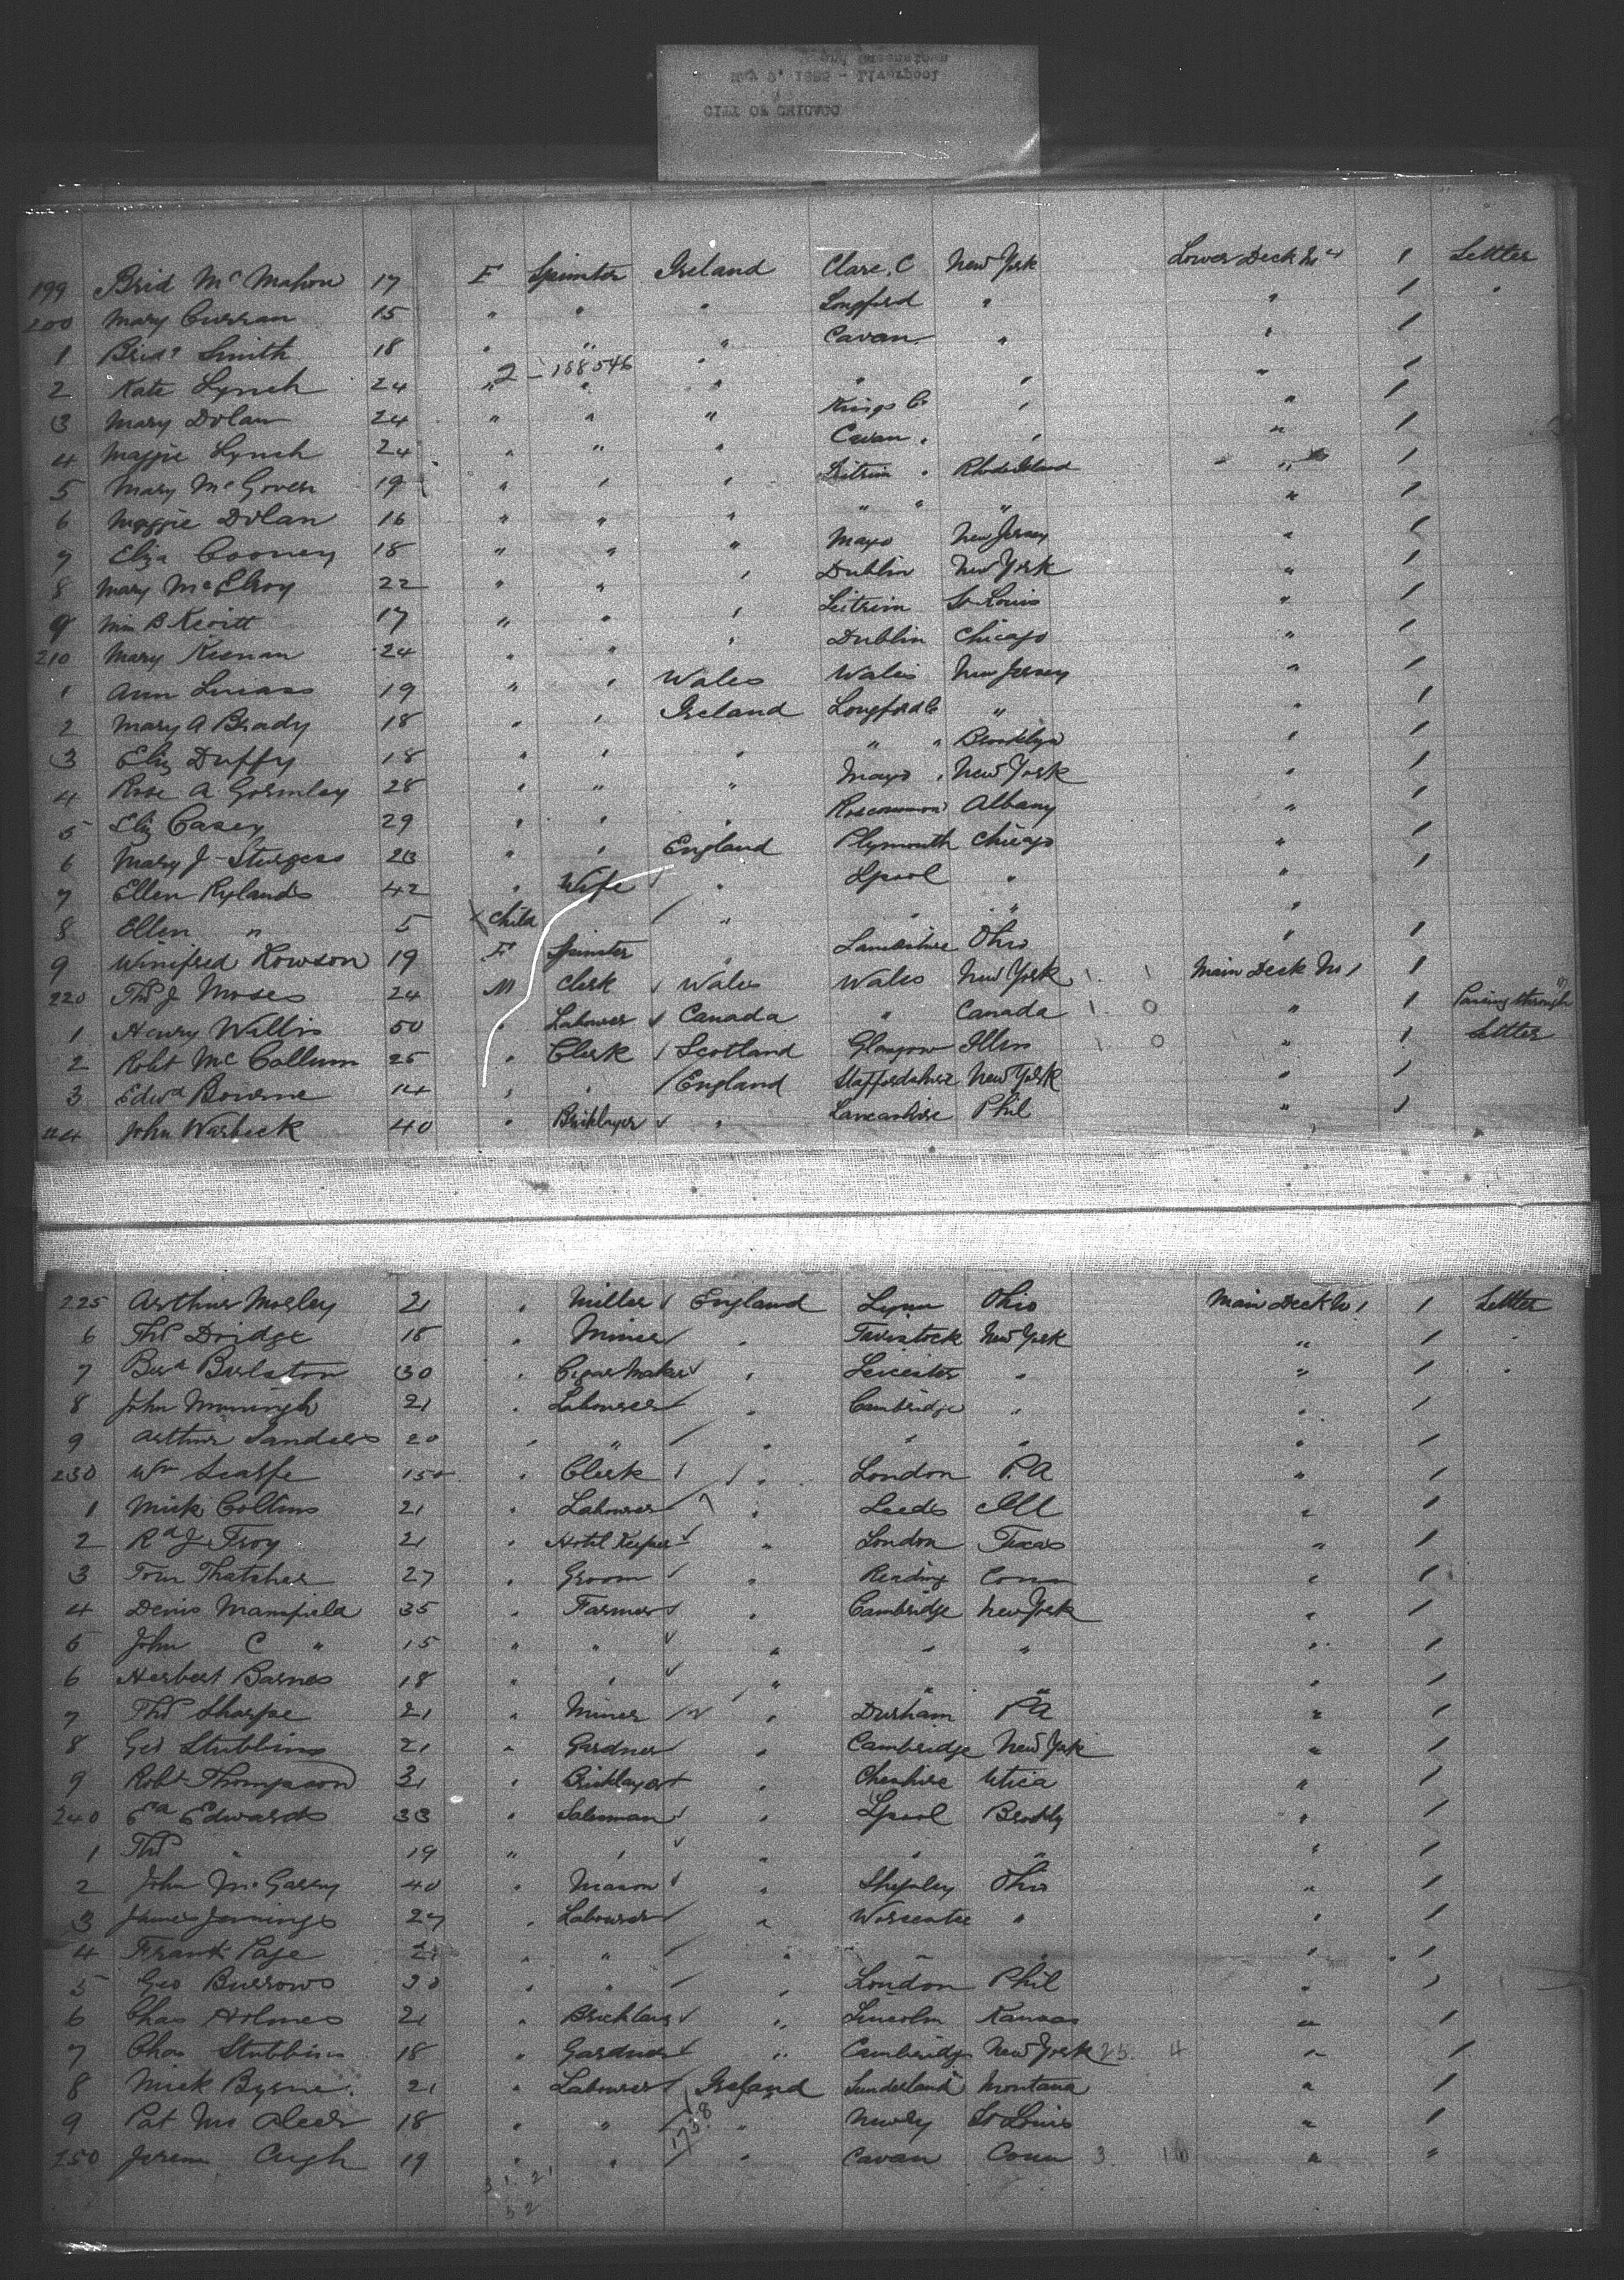 CITY OF CHICAGO
199 Brid Mc Mahon 17 F Spinster Ireland Clare. C New York Lower Deck No 4 1 Settler
200 Mary Curran 15 " " " Longford " " 1 "
1 Brid? Smith 18 " " " Cavan " " 1
2 - 188546
2 Kate Lynch 24 " " " " " " 1
3 Mary Dolan 24 " " " Kings Co " " 1
4 Maggie Lynch 24 " " " Cavan " " " 1
5 Mary McGovern 19 " " " Leitrim " Rhode Island " 1
6 Maggie Dolan 16 " " " " " " " 1
7 Eliza Cooney 18 " " " Mayo New Jersey " 1
8 Mary McElroy 22 " " " Dublin New York " 1
9 B Kevitt 17 " " " Leitrim St Louis " 1
210 Mary Kienan 24 " " " Dublin Chicago " 1
1 Ann Lucass 19 " " Wales Wales New Jersey " 1
2 Mary A Brady 18 " " Ireland Longford C " " 1
3 Eliz Duffy 18 " " " " " Brooklyn " 1
4 Rose A Gormley 28 " " " Mayo " New York " 1
5 Eliz Casey 29 " " " Roscommon Albany " 1
6 Mary J Sturgess 23 " " England Plymouth Chicago " 1
7 Ellen Rylands 42 " Wife " Lpool " " 1
8 Ellen " 5 Child " " " "
9 Winifred Howson 19 F Spinster " Lancashire Ohio " 1
220 Thos J Moses 24 M Clerk Wales Wales New York 1 1 Main Deck No 1 1
1 Henry Willis 50 " Labourer Canada " Canada 1 0 " 1 Passing through
2 Robt Mc Collum 25 " Clerk Scotland Glasgow Illin 1 0 " 1 Settler
3 Edwd Bourne 14 " " England Staffordshire New York " 1
224 John Warbeck 40 " Bricklayer " Lancashire Phil " 1
225 Arthur Morley 21 " Miller England Lynn Ohio Main Deck No 1 1 Settler
6 Thos Dridge 18 " Miner " Tavistock New York " 1 "
7 Burlston 30 " Cigar Maker " Leicester " " 1 "
8 John 21 " Labourer " Cambridge " " 1
9 Arthur Sanders 20 " " " " " " 1
230 Wm Scarfe 15 " Clerk " London P.A " 1
1 Mick Collins 21 " Labourer " Leeds Ill " 1
2 Rd J Troy 21 " Hotel Keeper " London Texas " 1
3 Tom Thatcher 27 " Groom " Reading Conn " 1
4 Denis Mansfield 35 " Farmer " Cambridge New York " 1
5 John C " 15 " " " " " " 1
6 Herbert Barnes 18 " " " " " " 1
7 Thos Sharpe 21 " Miner " Durham PA " 1
8 Geo Stubbins 21 " Gardner " Cambridge New York " 1
9 Robt Thompson 31 " Bricklayer " Cheshire Utica " 1
240 Ed Edwards 33 " Salesman " Lpool Brookly " 1
1 Thos " 19 " " " " " " 1
2 John McGarry 40 " Mason " Shepley Ohio " 1
3 James Jennings 27 " Labourer " Worcester " " 1
4 Frank Page 21 " " " " " " 1
5 Geo Burrows 30 " " " London Phil " 1
6 Chas Holmes 21 " Bricklayr " Lincoln Kansas " 1
7 Chas Stubbins 18 " Gardner " Cambridge New York 25 4 " 1
8 Mick Byrne 21 " Labourer Ireland Sunderland Montana " 1
9 Pat Mc Aleer 18 " " " Newry St Louis " 1
1738
250 Jerem 19 " " " Cavan Conn 3 10 " "
31 21
52